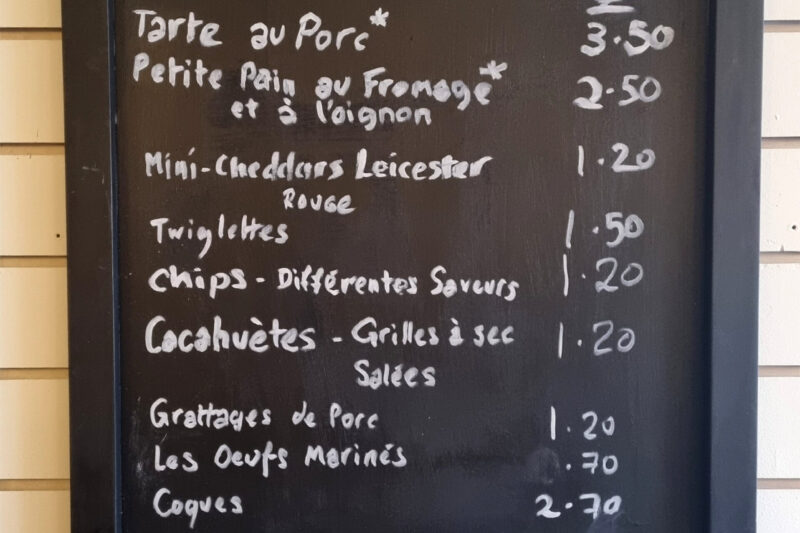 Tarte au Porc* 3.50
Petite Pain au Fromage* 2.50
et à l'oignon
Mini-Cheddars Leicester 1.20
Rouge
Twiglettes 1.50
Chips - Différentes Saveurs 1.20
Cacahuètes - Grilles à sec 1.20
Salées
Grattages de Porc 1.20
Les Oeufs Marinés .70
Coques 2.70